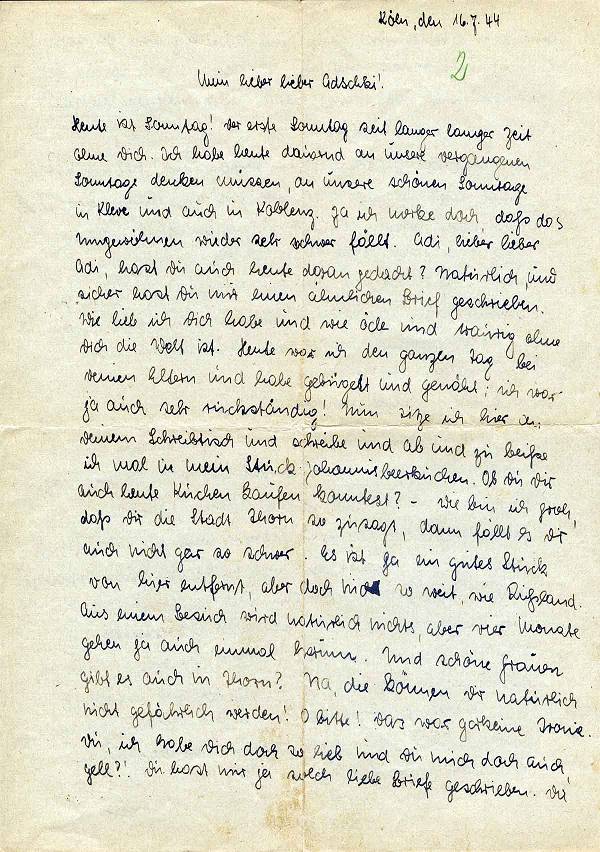 Köln, den 16.7.44
2
Mein lieber lieber Adschki!
Heute ist Sonntag! Der erste Sonntag seit langer langer Zeit
ohne Dich. Ich habe heute dauernd an unsere vergangenen
Sonntage denken müssen, an unsere schönen Sonntage
in Kleve und auch in Koblenz. Ja ich merke doch, daß das
Umgewöhnen wieder sehr schwer fällt. Adi, lieber lieber
Adi, hast Du auch heute daran gedacht? Natürlich, und
sicher hast Du mir einen ähnlichen Brief geschrieben.
Wie lieb ich Dich habe und wie öde und traurig ohne
Dich die Welt ist. Heute war ich den ganzen Tag bei
deinen Eltern und habe gebügelt und genäht; ich war
ja auch sehr rückständig! Nun sitze ich hier an
deinem Schreibtisch und schreibe und ab und zu beiße
ich mal in mein Stück Johannisbeerkuchen. Ob Du Dir
auch heute Kuchen kaufen konntest? - Wie bin ich froh,
daß Dir die Stadt Thorn so zusagt, dann fällt es Dir
auch nicht gar so schwer. Es ist ja ein gutes Stück
von hier entfernt, aber doch so weit, wie Rußland.
Aus einem Besuch wird natürlich nichts, aber vier Monate
gehen ja auch einmal herum. Und schöne Frauen
gibt es auch in Thorn? Na, die können Dir natürlich
nicht gefährlich werden! O bitte! Das war garkeine Ironie.
Du, ich habe Dich doch so lieb und Du mich doch auch,
gell?! Du hast mir ja solch liebe Briefe geschrieben. Du